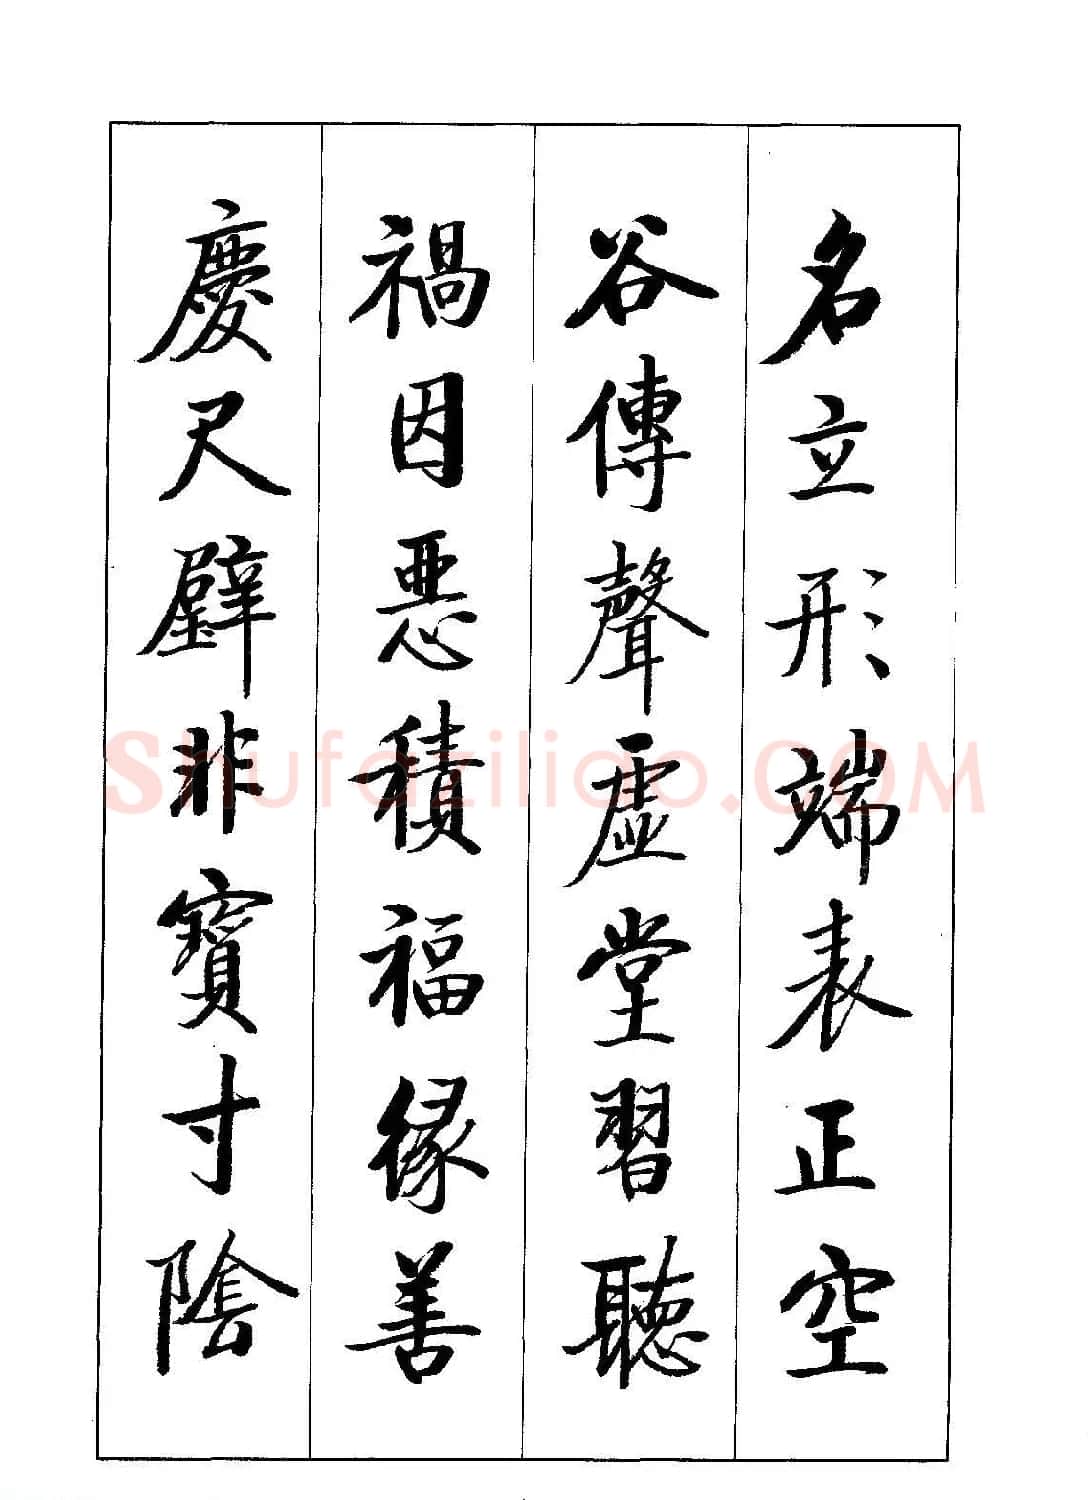 名立形端表正空
谷傳聲虛堂習聽
禍因惡積福緣善
慶尺璧非寶寸陰
Shufaziliao.COM